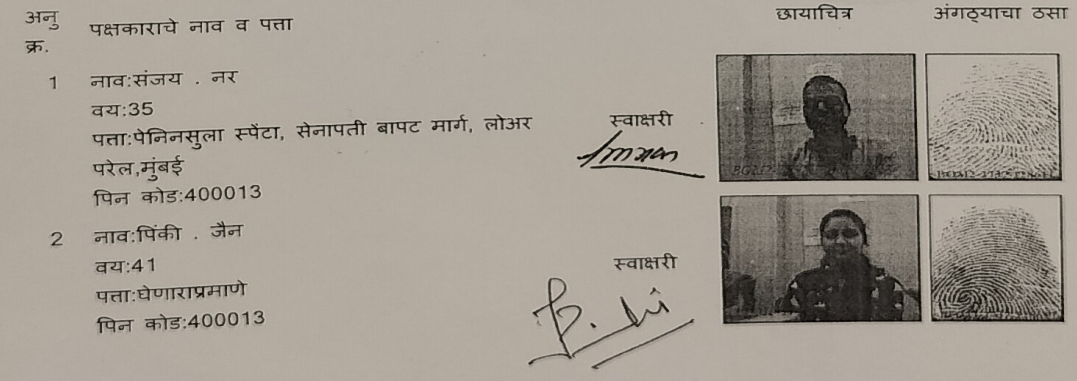 अनु क्र. पक्षकाराचे नाव व पत्ता छायाचित्र अंगठ्याचा ठसा
1 नाव:संजय . नर
वय:35
पत्ता:पेनिनसुला स्पेंटा, सेनापती बापट मार्ग, लोअर
परेल,मुंबई
पिन कोड:400013
स्वाक्षरी
2 नाव:पिंकी . जैन
वय:41
पत्ता:घेणाराप्रमाणे
पिन कोड:400013
स्वाक्षरी